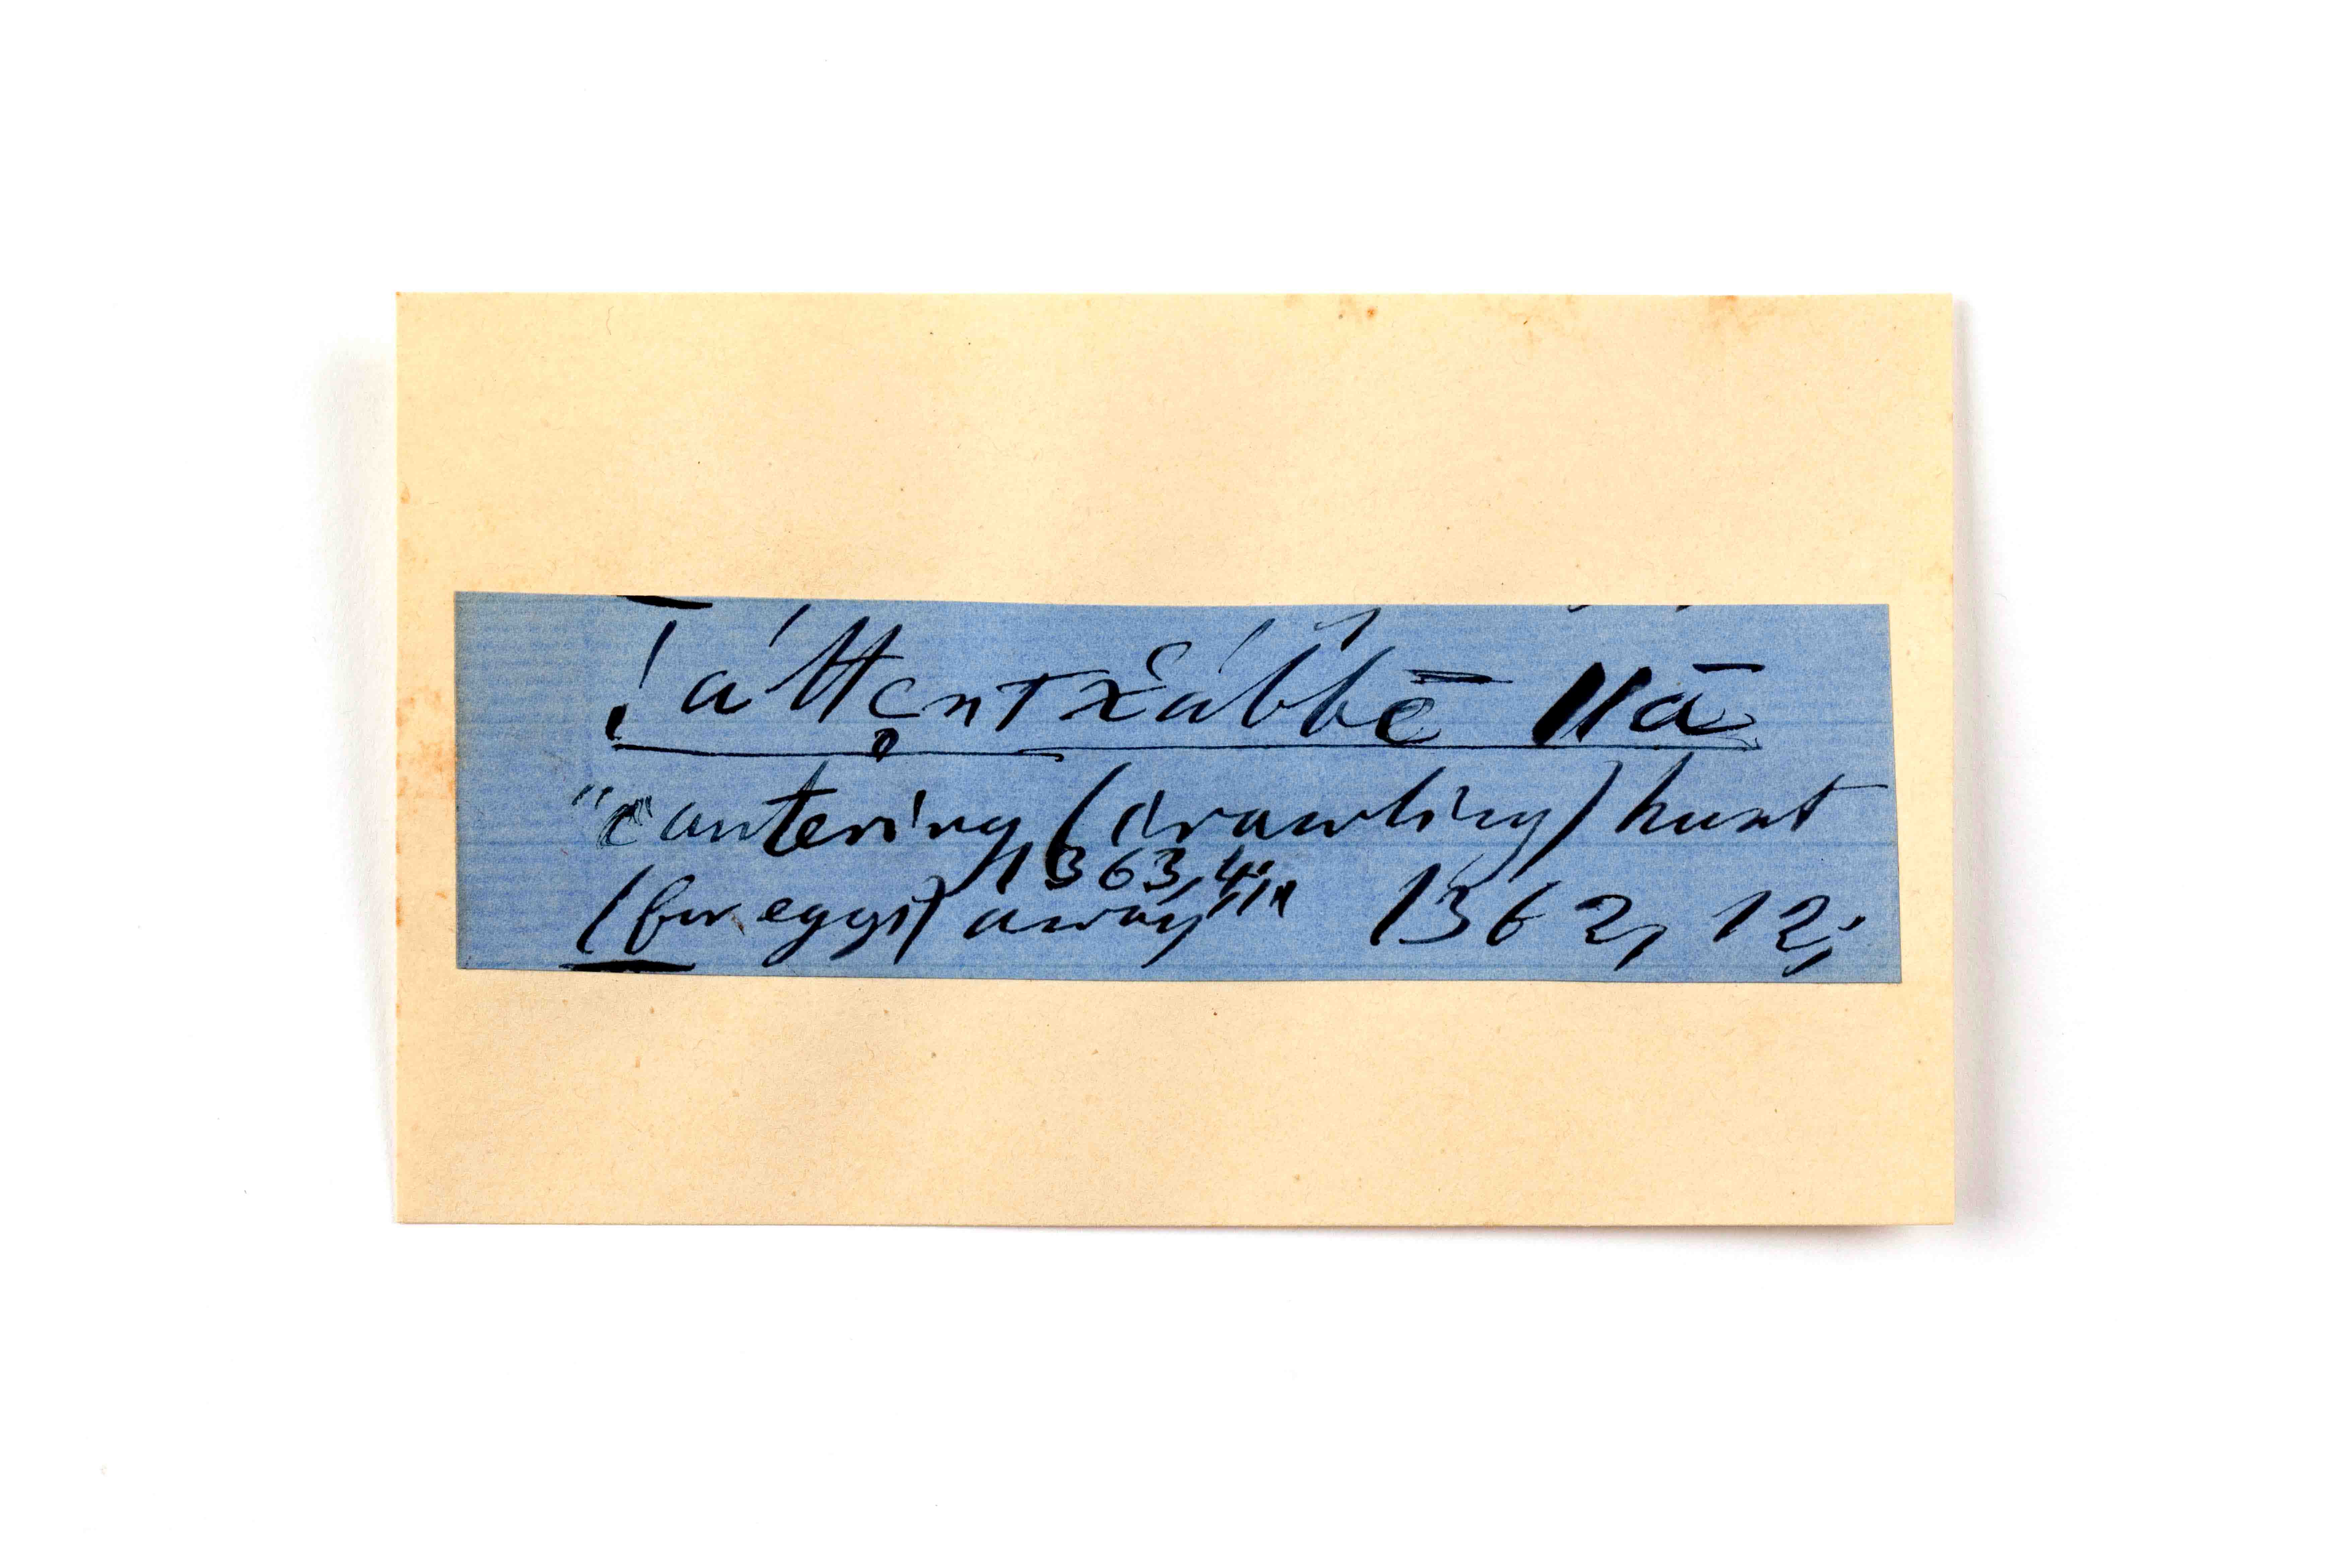 !áttẹntx̆ábbē ǁā
"cantering (crawling) hunt
1363, 4;
(for eggs) away" 1362, 12;